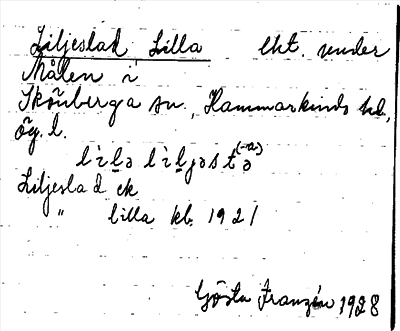 Liljeslad Lilla lht. under
Målen i
Skönberga sn., Hammarkinds hd,
ög. l.
lìlə lìljəstə (-a)
Liljeslad ek
" lilla kb. 1921
Gösta Franzén 1928